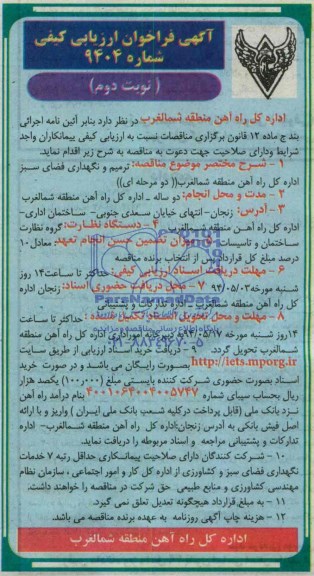 آگهی فراخوان ارزیابی کیفی
شماره ۹۴۰۴
( نوبت دوم )
اداره کل راه آهن منطقه شمالغرب در نظر دارد بنابر آئین نامه اجرائی
بند ج ماده ۱۲ قانون برگزاری مناقصات نسبت به ارزیابی کیفی پیمانکاران واجد
شرایط ودارای صلاحیت جهت دعوت به مناقصه به شرح زیر اقدام نماید.
۱ - شرح مختصر موضوع مناقصه: ترمیم و نگهداری فضای سبز
اداره کل راه آهن منطقه شمالغرب(( دو مرحله ای))
۲ - مدت و محل انجام: دو ساله - اداره کل راه آهن منطقه شمالغرب
۳ - آدرس: زنجان - انتهای خیابان سعدی جنوبی- ساختمان اداری-
اداره کل راه آهن منطقه شمالغرب ۴ - دستگاه نظارت: گروه نظارت
ساختمان و تاسیسات ۵ - میزان تضمین حسن انجام تعهد: معادل ۱۰
درصد مبلغ کل قرارداد پس از انتخاب برنده مناقصه
۶ - مهلت دریافت اسناد ارزیابی کیفی: حداکثر تا ساعت ۱۴ روز
شنبه مورخه ۹۴/۰۵/۰۳ ۷ - محل دریافت حضوری اسناد: زنجان اداره
کل راه آهن منطقه شمالغرب - اداره تدارکات و پشتیبانی
۸ - مهلت و محل تحویل اسناد تکمیل شده: حداکثر تا ساعت
۱۴ روز شنبه مورخه ۹۴/۰۵/۱۷ دبیرخانه امور اداری اداره کل راه آهن منطقه
شمالغرب تحویل گردد. ۹ - دریافت خرید اسناد ارزیابی از طریق سایت
http://iets.mporg.ir بصورت رایگان می باشد و در صورت خرید
اسناد بصورت حضوری شرکت کننده بایستی مبلغ (۱۰۰,۰۰۰) یکصد هزار
ریال بحساب سیبای شماره ۴۰۰۱۰۶۴۰۰۴۰۰۵۷۴۷ بنام درآمد راه آهن
نزد بانک ملی (قابل پرداخت در کلیه شعب بانک ملی ایران ) واریز و با ارائه
اصل فیش بانکی به آدرس زنجان:اداره کل راه آهن منطقه شمالغرب- اداره
تدارکات و پشتیبانی مراجعه و اسناد مربوطه را دریافت نماید.
۱۰ - شرکت کنندگان دارای صلاحیت پیمانکاری حداقل رتبه ۷ خدمات
نگهداری فضای سبز و کشاورزی از اداره کل کار و امور اجتماعی ، سازمان نظام
مهندسی کشاورزی و منابع طبیعی حق شرکت در مناقصه را خواهند داشت.
۱۱ - به مبلغ قرارداد هیچگونه تعدیل تعلق نمی گیرد.
۱۲ - هزینه چاپ آگهی روزنامه به عهده برنده مناقصه می باشد.
اداره کل راه آهن منطقه شمالغرب